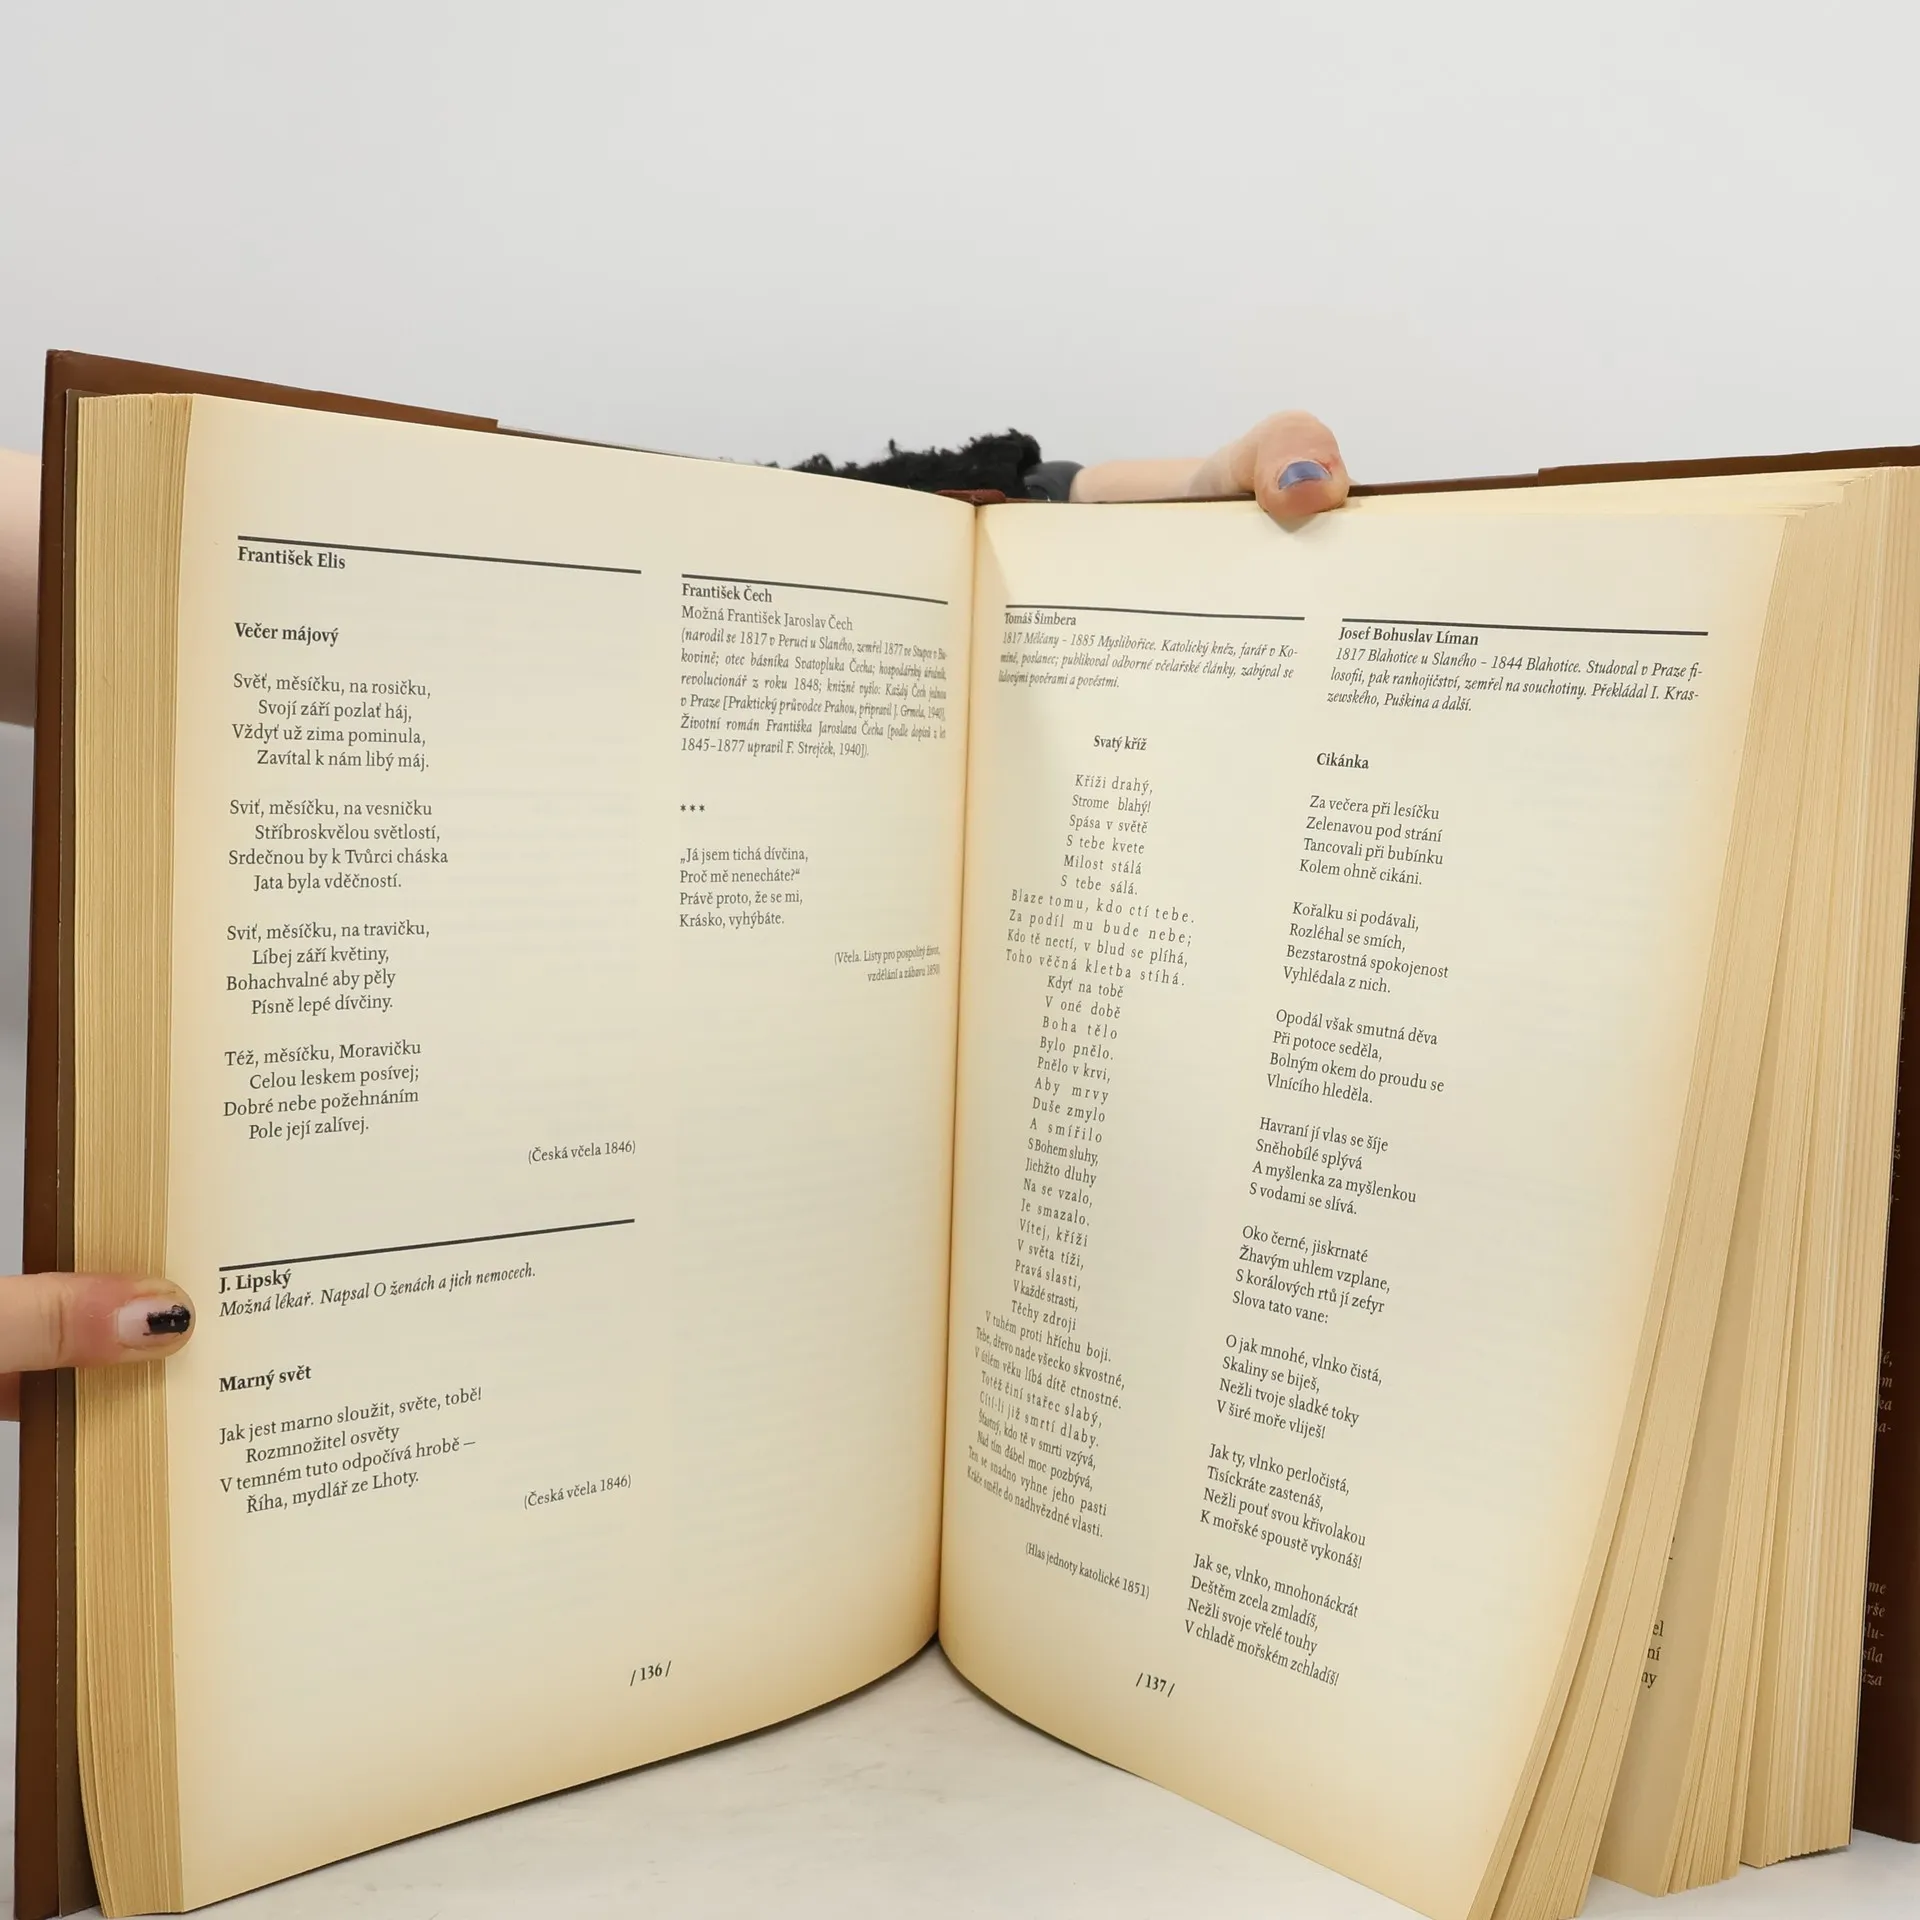 František Elis
Večer májový
Svěť, měsíčku, na rosičku,
Svojí září pozlať háj,
Vždyť už zima pominula,
Zavítal k nám libý máj.
Sviť, měsíčku, na vesničku
Stříbroskvělou světlostí,
Srdečnou by k Tvůrci cháska
Jata byla vděčností.
Sviť, měsíčku, na travičku,
Líbej září květiny,
Bohachvalné aby pěly
Písně lepé dívčiny.
Též, měsíčku, Moravičku
Celou leskem posívej;
Dobré nebe požehnáním
Pole její zalívej.
(Česká včela 1846)
J. Lipský
Možná lékař. Napsal O ženách a jich nemocech.
Marný svět
Jak jest marno sloužit, světe, tobě!
Rozmnožitel osvěty
V temném tuto odpočívá hrobě –
Říha, mydlář ze Lhoty.
(Česká včela 1846)
František Čech
Možná František Jaroslav Čech
(narodil se 1817 v Peruci u Slaného, zemřel 1877 ve Stupce v Bu-
kovině; otec básníka Svatopluka Čecha; hospodářský úředník,
revolucionář z roku 1848; knižně vyšlo: Každý Čech jednou
v Praze [Praktický průvodce Prahou, připravil J. Grmela, 1940],
Životní román Františka Jaroslava Čecha [podle dopisů z let
1845–1877 upravil F. Strejček, 1940]).
***
„Já jsem tichá dívčina,
Proč mě nenecháte?“
Právě proto, že se mi,
Krásko, vyhýbáte.
(Včela. Listy pro pospolitý život,
vzdělání a zábavu 1850)
/ 136 /
Tomáš Šimbera
1817 Mělčany – 1885 Myslibořice. Katolický kněz, farář v Ko-
míně, poslanec; publikoval odborné včelařské články, zabýval se
lidovými pověrami a pověstmi.
Svatý kříž
Kříži drahý,
Strome blahý!
Spása v světě
S tebe kvete
Milost stálá
S tebe sálá.
Blaze tomu, kdo ctí tebe.
Za podíl mu bude nebe;
Kdo tě nectí, v blud se plíhá,
Toho věčná kletba stíhá.
Kdyť na tobě
V oné době
Boha tělo
Bylo pnělo.
Pnělo v krvi,
Aby mrvy
Duše zmylo
A smířilo
S Bohem sluhy,
Jichžto dluhy
Na se vzalo,
Je smazalo.
Vítej, kříži
V světa tíži,
Pravá slasti,
V každé strasti,
Těchy zdroji
V tuhém proti hříchu boji.
Tebe, dřevo nade všecko skvostné,
V útlém věku líbá dítě ctnostné.
Totéž činí stařec slabý,
Cítí-li již smrtí dlaby.
Šťastný, kdo tě v smrti vzývá,
Nad tím ďábel moc pozbývá,
Ten se snadno vyhne jeho pasti
Kráče směle do nadhvězdné vlasti.
(Hlas jednoty katolické 1851)
Josef Bohuslav Líman
1817 Blahotice u Slaného – 1844 Blahotice. Studoval v Praze fi-
losofii, pak ranhojičství, zemřel na souchotiny. Překládal I. Kras-
zewského, Puškina a další.
Cikánka
Za večera při lesíčku
Zelenavou pod strání
Tancovali při bubínku
Kolem ohně cikáni.
Kořalku si podávali,
Rozléhal se smích,
Bezstarostná spokojenost
Vyhlédala z nich.
Opodál však smutná děva
Při potoce seděla,
Bolným okem do proudu se
Vlnícího hleděla.
Havraní jí vlas se šíje
Sněhobílé splývá
A myšlenka za myšlenkou
S vodami se slívá.
Oko černé, jiskrnaté
Žhavým uhlem vzplane,
S korálových rtů jí zefyr
Slova tato vane:
O jak mnohé, vlnko čistá,
Skaliny se biješ,
Nežli tvoje sladké toky
V širé moře vliješ!
Jak ty, vlnko perločistá,
Tisíckráte zastenáš,
Nežli pouť svou křivolakou
K mořské spoustě vykonáš!
Jak se, vlnko, mnohonáckrát
Deštěm zcela zmladíš,
Nežli svoje vřelé touhy
V chladě mořském zchladíš!
/ 137 /